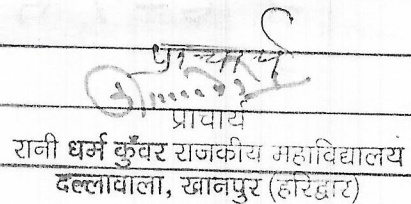 प्राचार्य
प्राचार्य
रानी धर्म कुँवर राजकीय महाविद्यालय
दल्लावाला, खानपुर (हरिद्वार)